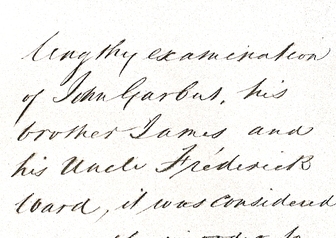 lengthy examination
of John Garbut, his
brother James and
his Uncle Frederick
Ward, it was considered